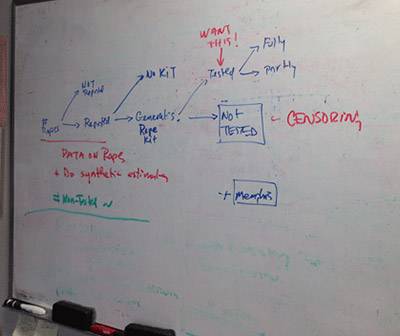 WANT
THIS!
Fully
Partly
Tested
No KiT
NOT
Reported
# Rapes
Reported
Generates
Rape
Kit
?
NOT
TESTED
← CENSORING
DATA ON Rapes
+ Do synthetic estimates
# Non-Tested ~
+ Memphis